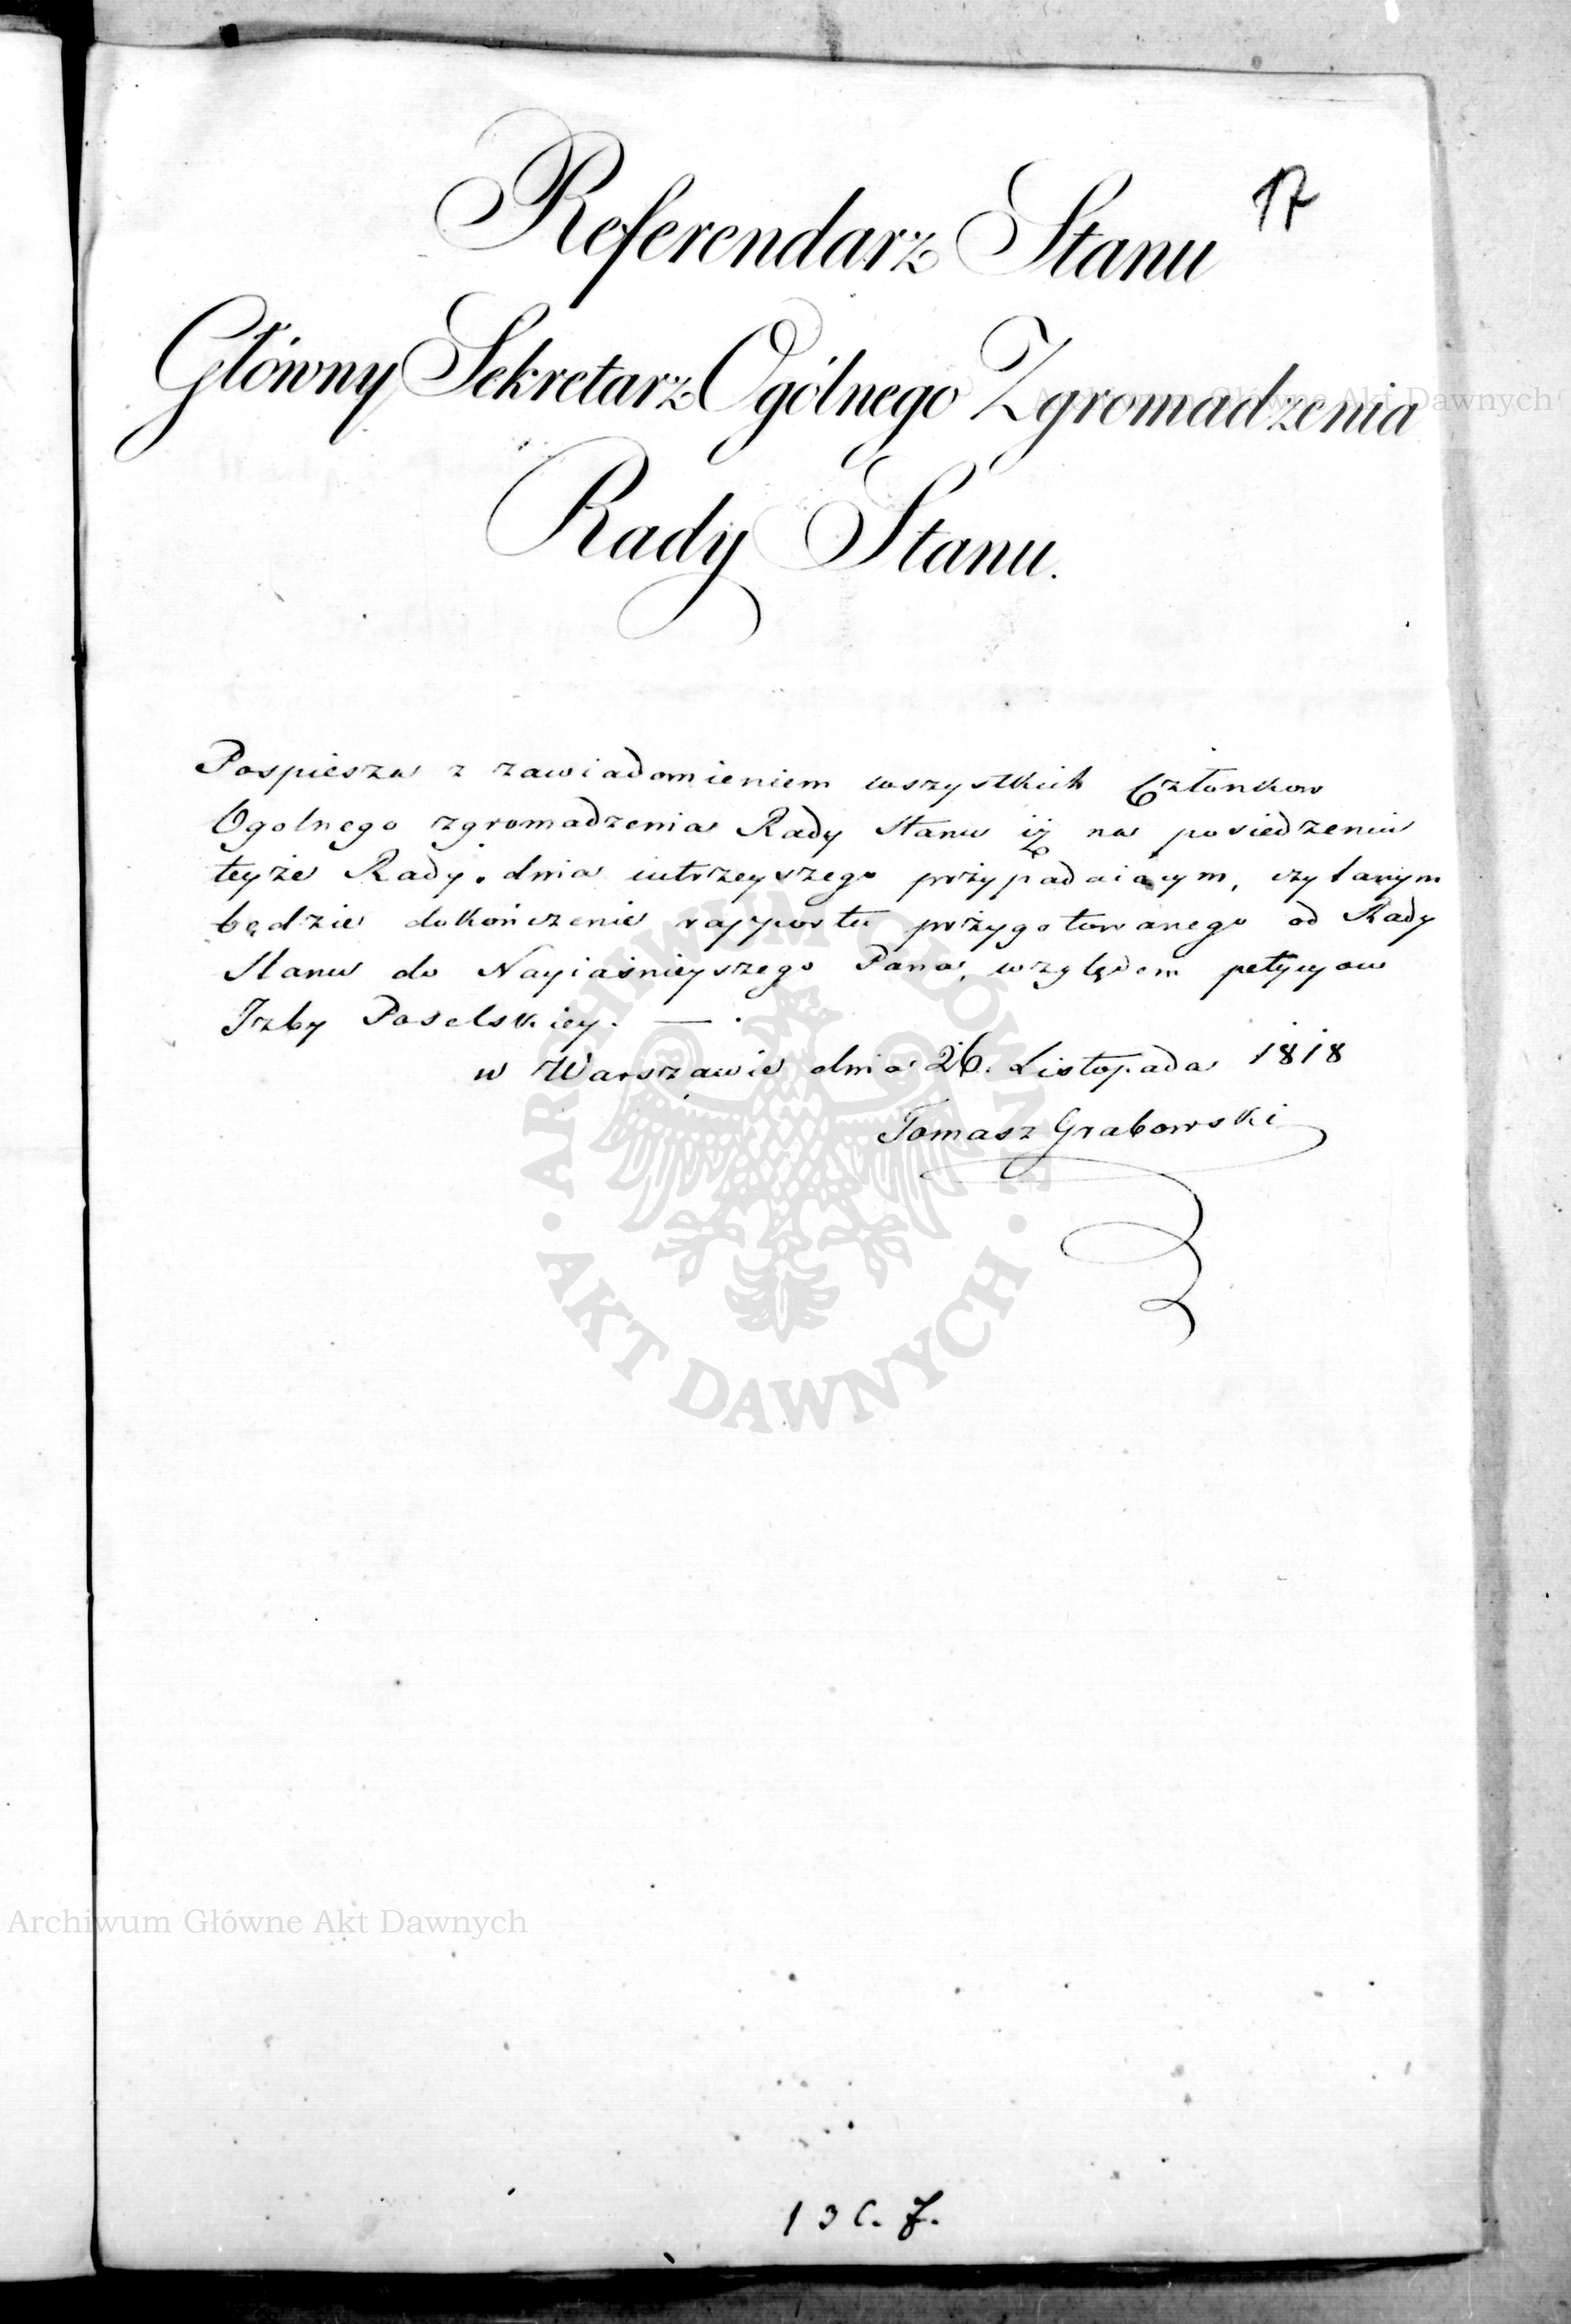 17
Referendarz Stanu
Główny Sekretarz Ogólnego Zgromadzenia
Rady Stanu.
Pospiesza z zawiadomieniem wszystkich Członkow
Ogolnego zgromadzenia Rady Stanu iż na posiedzeniu
teyże Rady, dnia iutrzeyszego przypadaiącym, czytanym
będzie dokończenie rapportu przygotowanego od Rady
Stanu do Nayiaśnieyszego Pana, względem petycyow
Izby Poselskiey. — .
w Warszawie dnia 26. Listopada 1818
Tomasz Grabowski
ARCHIWUM GŁÓWNE · AKT DAWNYCH ·
Archiwum Główne Akt Dawnych
Archiwum Główne Akt Dawnych